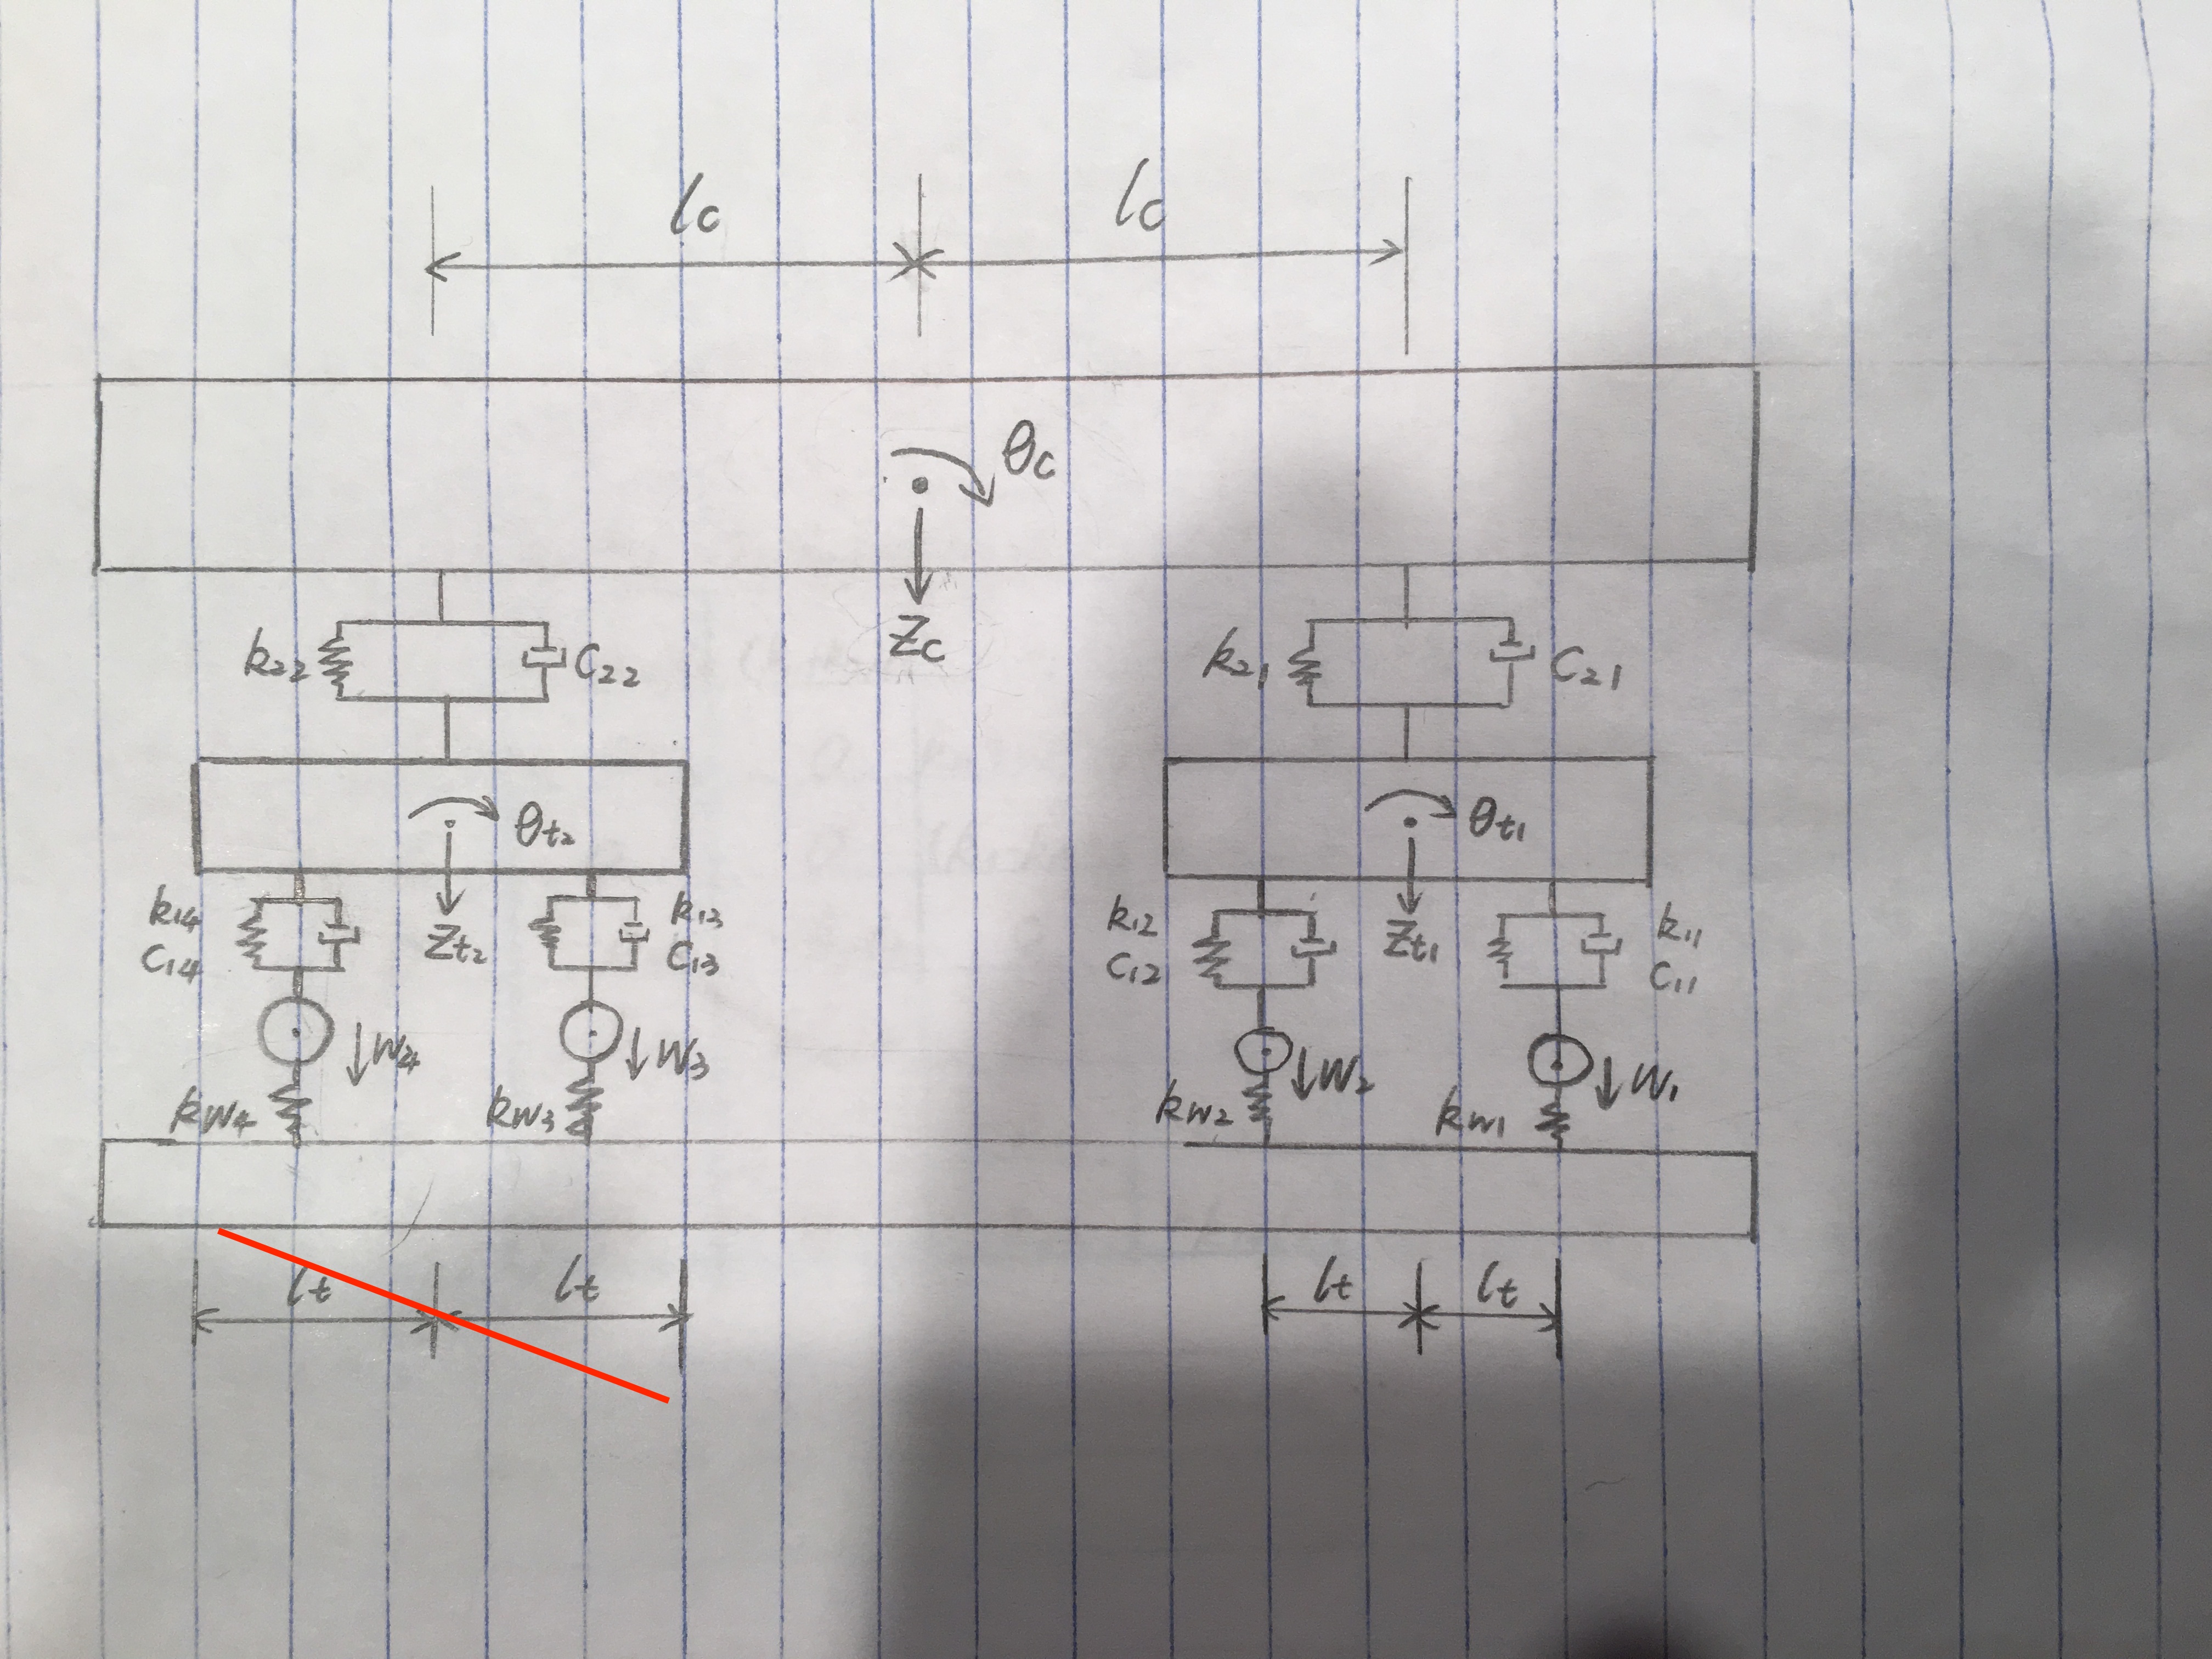 lc lc
θc
Zc
k22 C22
k21 C21
θt2
θt1
k14
C14
Zt2
k13
C13
k12
C12
Zt1
k11
C11
W4
W3
W2
W1
kw4
kw3
kw2
kw1
lt lt
lt lt